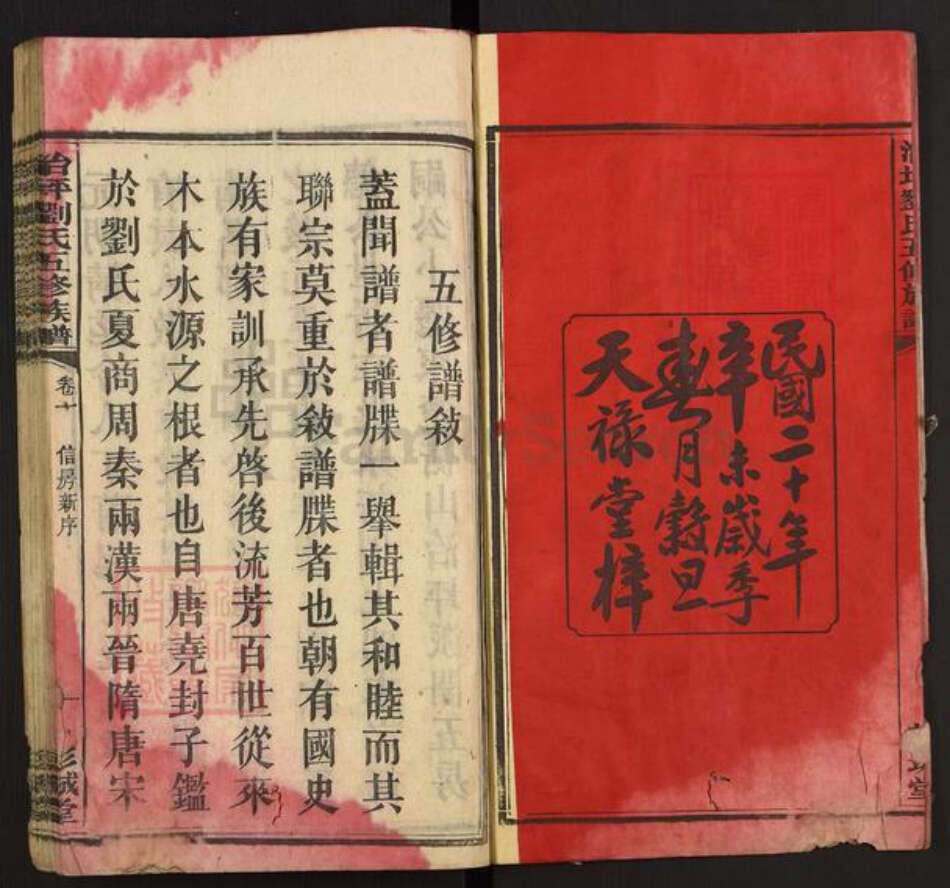 民國二十年
辛未歲季
春月穀旦
天祿堂梓
五修譜敘
蓋聞譜者譜牒一舉輯其和睦而其
聯宗莫重於敘譜牒者也朝有國史
族有家訓承先啓後流芳百世從來
木本水源之根者也自唐堯封子鑑
於劉氏夏商周秦兩漢兩晉隋唐宋
冶坪劉氏五修族譜
卷十
信房新序
一
彭城堂